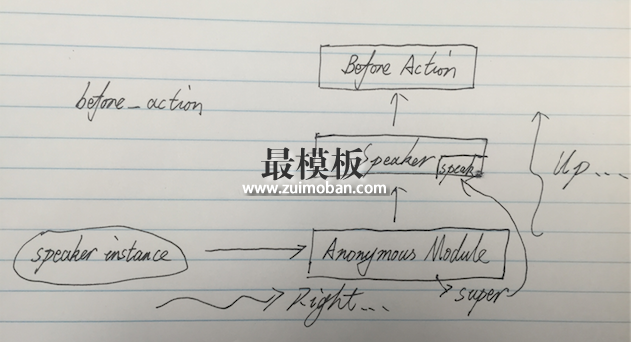 Before Action
before_action
Speaker
speak
最模板
www.zuimoban.com
Up...
speaker instance
Anonymous Module
super
Right...